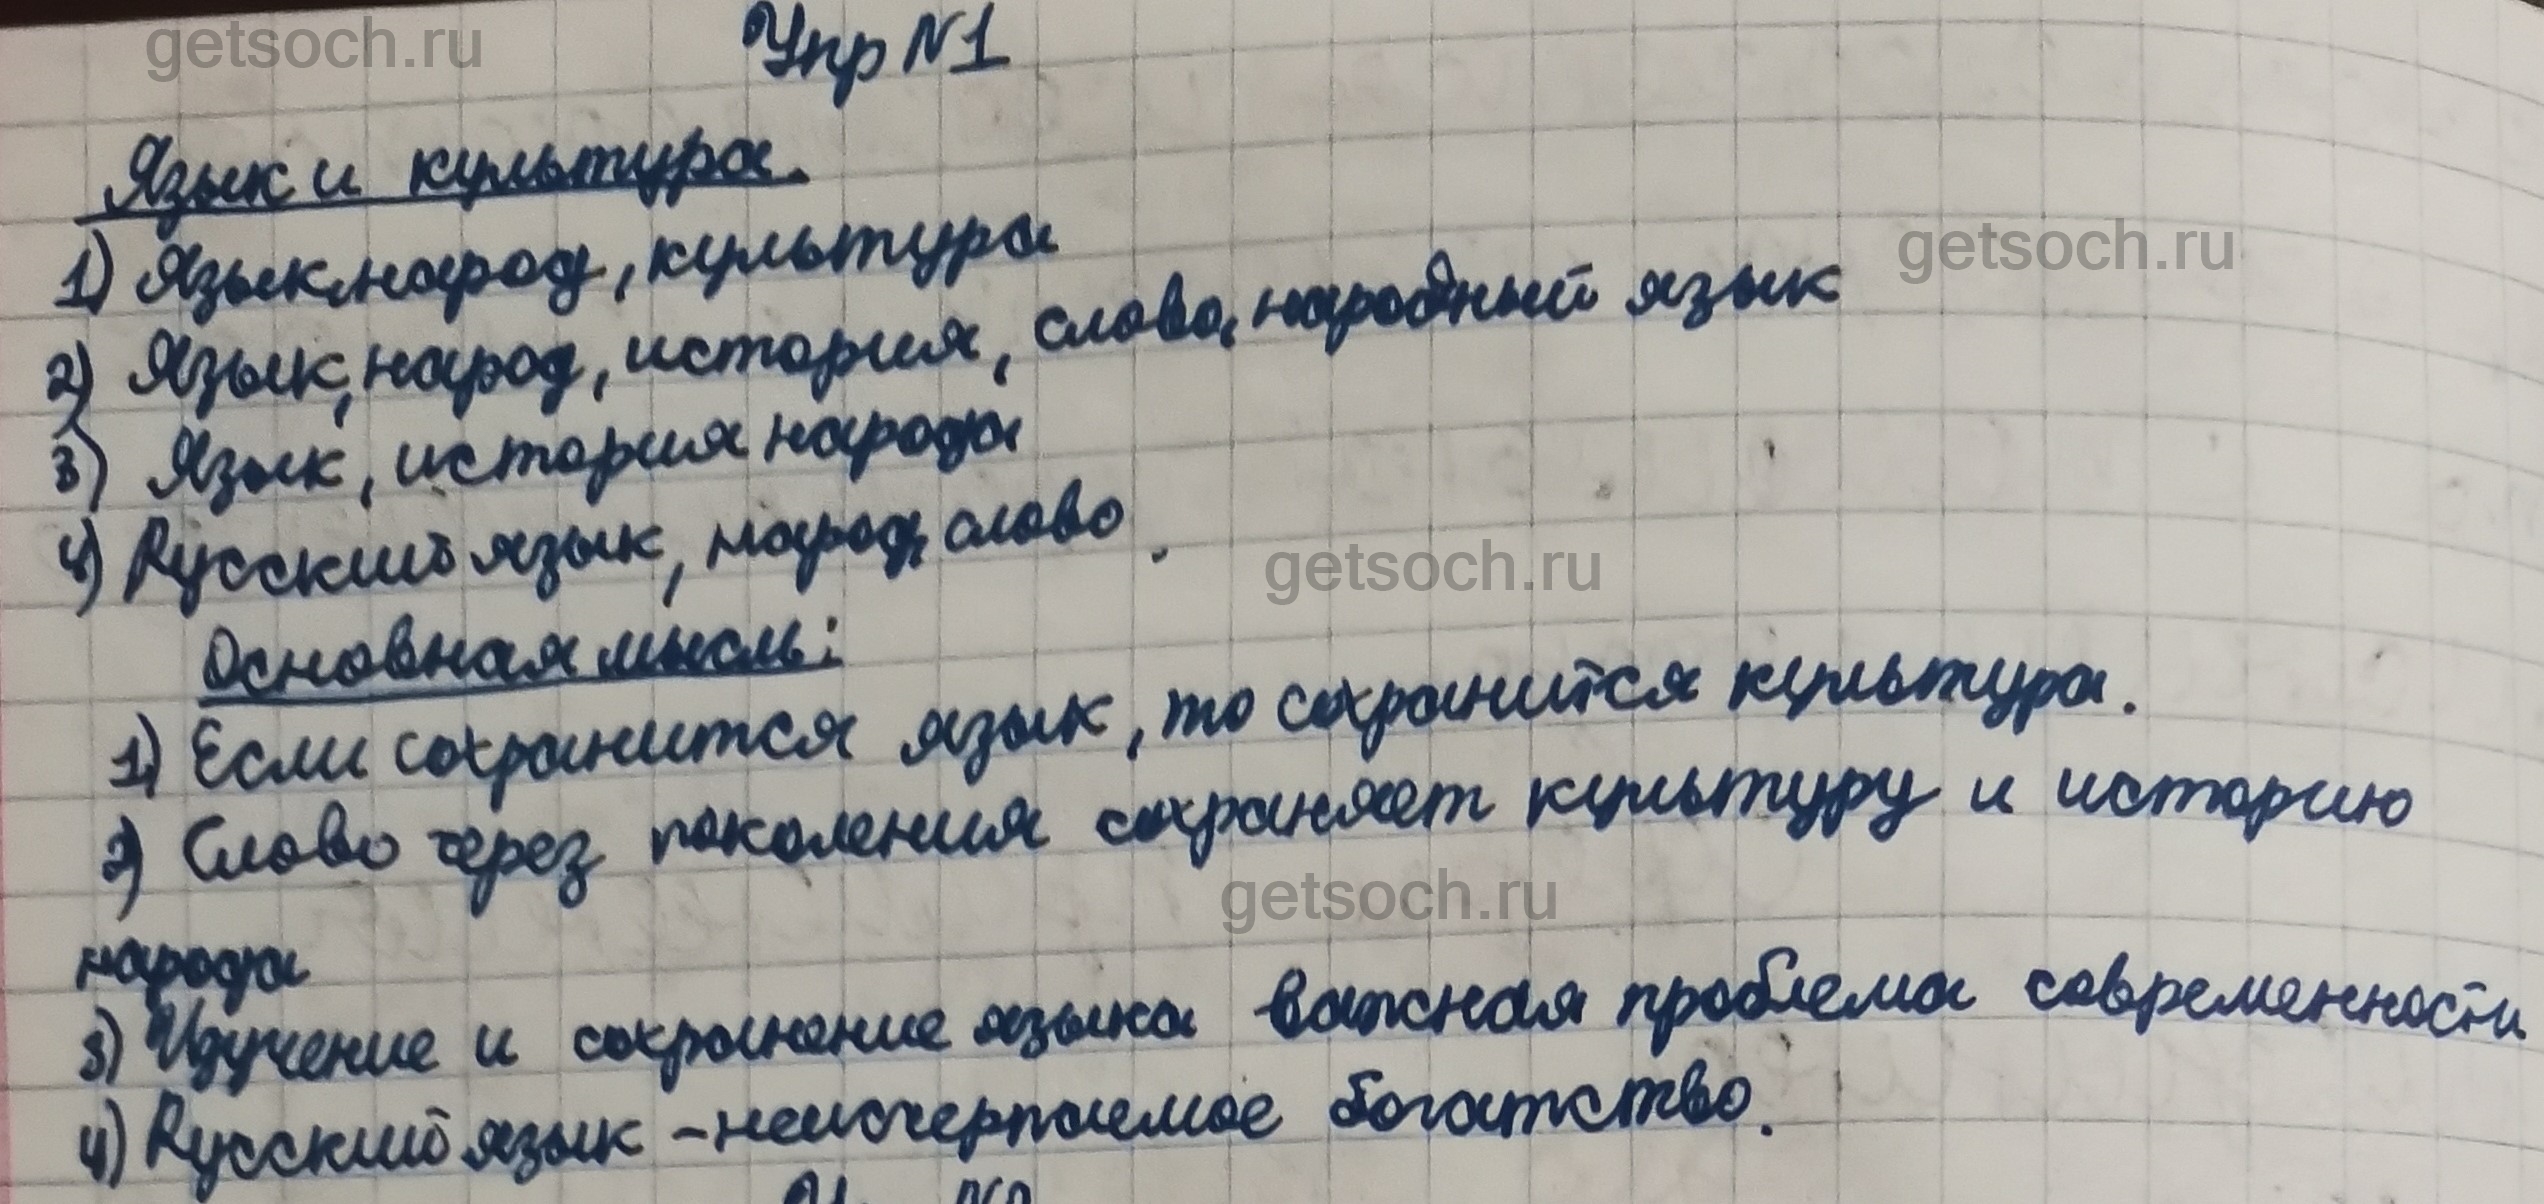 getsoch.ru
Упр №1
Язык и культура.
1) Язык, народ, культура
getsoch.ru
2) Язык, народ, история, слово, народный язык
3) Язык, история народа
4) Русский язык, народ, слово.
getsoch.ru
Основная мысль:
1) Если сохранится язык, то сохранится культура.
2) Слово через поколения сохраняет культуру и историю
getsoch.ru
народа
3) Изучение и сохранение языка важная проблема современности
4) Русский язык - неисчерпаемое богатство.